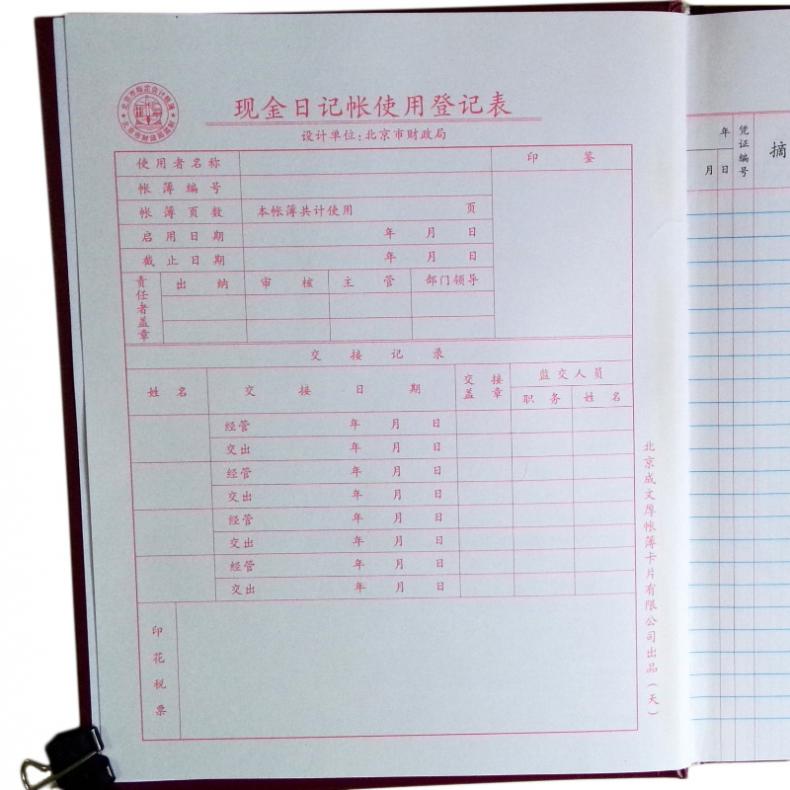 现金日记帐使用登记表
设计单位:北京市财政局
使用者名称
印 鉴
帐簿编号
帐簿页数 本帐簿共计使用 页
启用日期 年 月 日
截止日期 年 月 日
责任者盖章
出纳 审核 主管 部门领导
交接记录
姓名 交接日期 交接盖章 监交人员
职务 姓名
经管 年 月 日
交出 年 月 日
经管 年 月 日
交出 年 月 日
经管 年 月 日
交出 年 月 日
经管 年 月 日
交出 年 月 日
印花税票
北京成文厚帐簿卡片有限公司出品(天)
年
月 日
凭证编号
摘